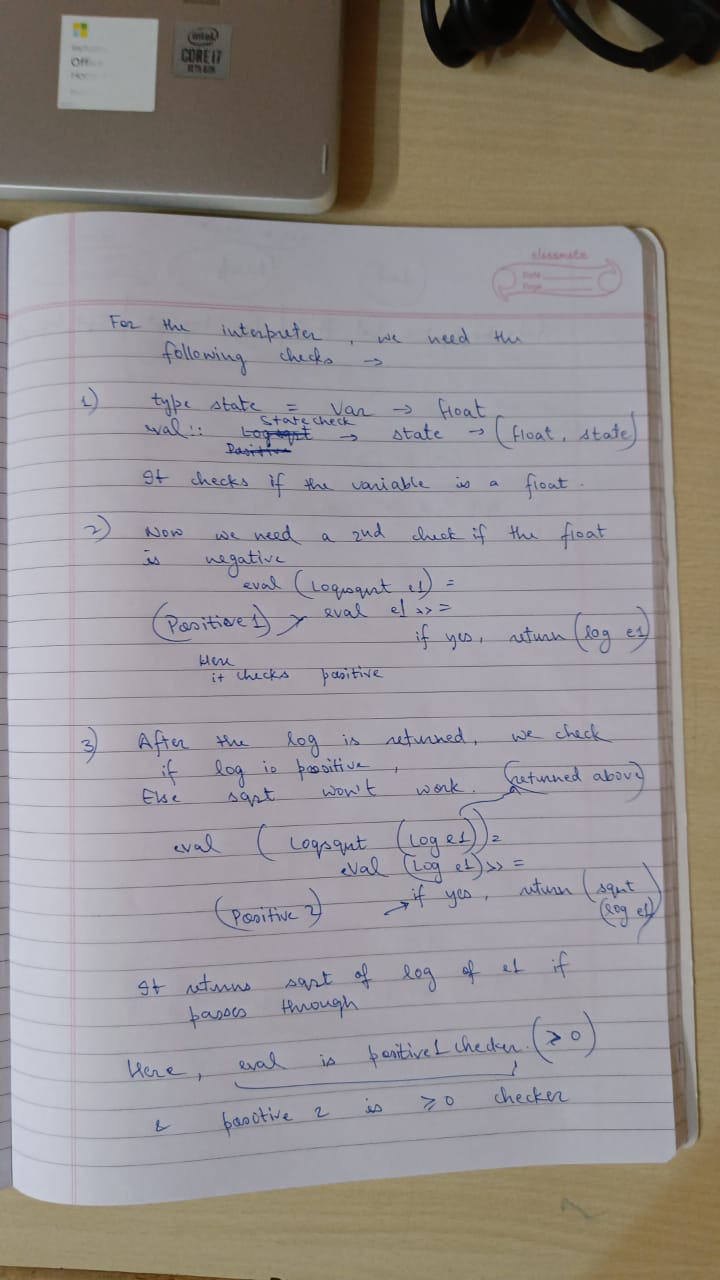 intel
CORE i7
10TH GEN
Offi
classmate
Date
Page
For the interpreter, we need the
following checks →
1) type state = Var → float
State check
eval:: Logsqrt → state → (float, state)
Positive
It checks if the variable is a float.
2) Now we need a 2nd check if the float
is negative
eval (Logsqrt e1) =
(Positive 1) eval e1 >>=
if yes, return (log e1)
Here
it checks positive
3) After the log is returned, we check
if log is positive,
Else sqrt won't work. (returned above)
eval (Logsqrt (Log e1)) =
eval (Log e1) >>=
(Positive 2) → if yes, return (sqrt
(log e1)
It returns sqrt of log of e1 if
passes through
Here, eval is positive1 checker. (≥ 0)
& positive 2 is ≥0 checker